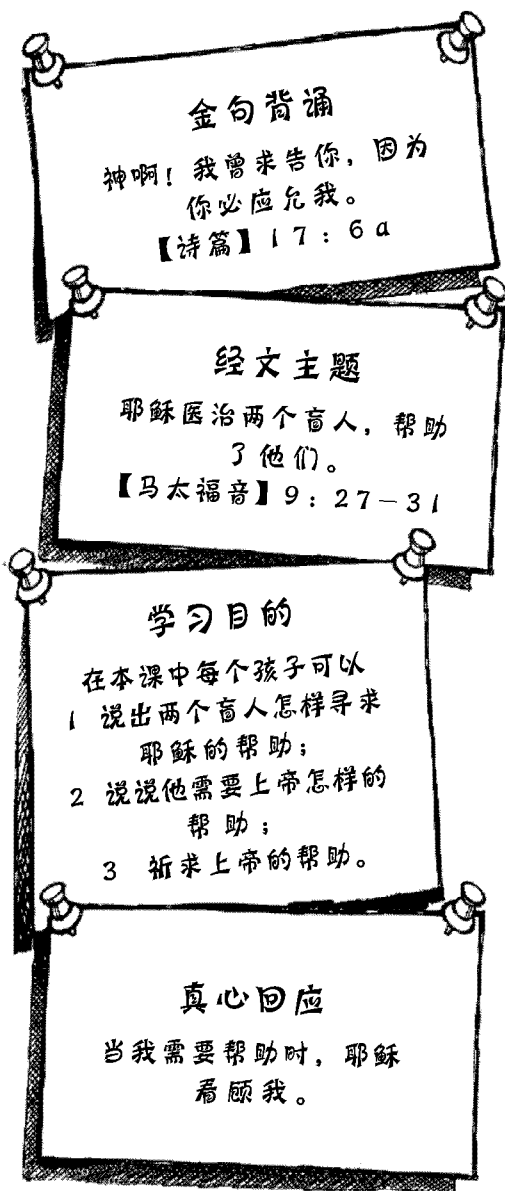 金句背诵
神啊！我曾求告你，因为
你必应允我。
【诗篇】17：6a
经文主题
耶稣医治两个盲人，帮助
了他们。
【马太福音】9：27－31
学习目的
在本课中每个孩子可以
1 说出两个盲人怎样寻求
耶稣的帮助；
2 说说他需要上帝怎样的
帮助；
3 祈求上帝的帮助。
真心回应
当我需要帮助时，耶稣
看顾我。